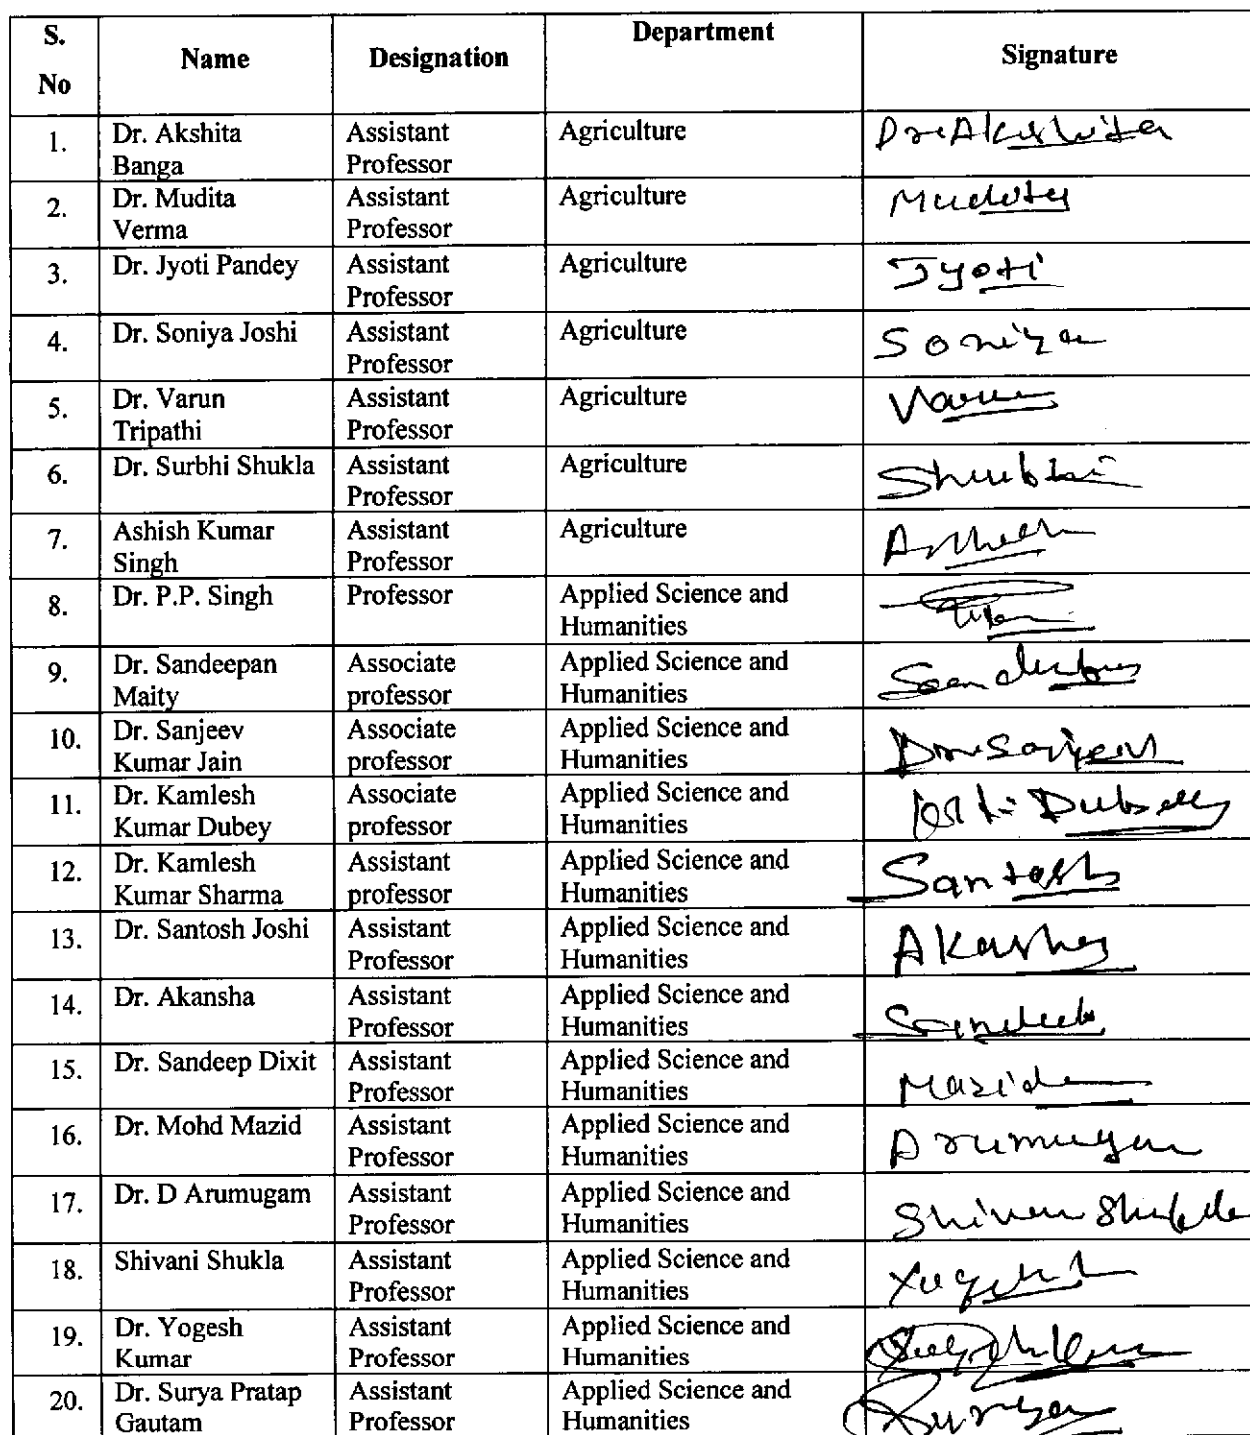 S. No Name Designation Department Signature
1. Dr. Akshita Banga Assistant Professor Agriculture Dr. Akshita
2. Dr. Mudita Verma Assistant Professor Agriculture Mudita
3. Dr. Jyoti Pandey Assistant Professor Agriculture Jyoti
4. Dr. Soniya Joshi Assistant Professor Agriculture Soniya
5. Dr. Varun Tripathi Assistant Professor Agriculture Varun
6. Dr. Surbhi Shukla Assistant Professor Agriculture Shurbhi
7. Ashish Kumar Singh Assistant Professor Agriculture
8. Dr. P.P. Singh Professor Applied Science and Humanities
9. Dr. Sandeepan Maity Associate professor Applied Science and Humanities
10. Dr. Sanjeev Kumar Jain Associate professor Applied Science and Humanities Dr. Sanjeev
11. Dr. Kamlesh Kumar Dubey Associate professor Applied Science and Humanities Dubey
12. Dr. Kamlesh Kumar Sharma Assistant professor Applied Science and Humanities Santosh
13. Dr. Santosh Joshi Assistant Professor Applied Science and Humanities
14. Dr. Akansha Assistant Professor Applied Science and Humanities Sandeep
15. Dr. Sandeep Dixit Assistant Professor Applied Science and Humanities Mazid
16. Dr. Mohd Mazid Assistant Professor Applied Science and Humanities Arumugam
17. Dr. D Arumugam Assistant Professor Applied Science and Humanities Shivani Shukla
18. Shivani Shukla Assistant Professor Applied Science and Humanities Yogesh
19. Dr. Yogesh Kumar Assistant Professor Applied Science and Humanities
20. Dr. Surya Pratap Gautam Assistant Professor Applied Science and Humanities Surya